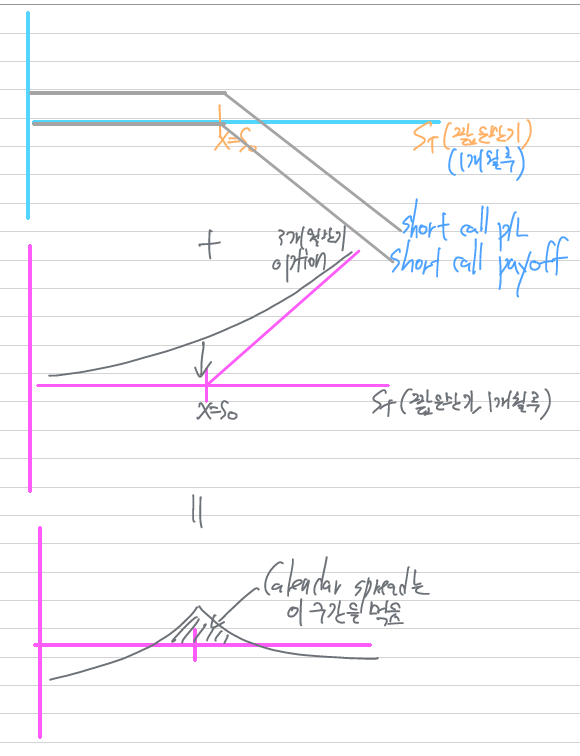 X=S₀
S_T (짧은만기)
(1개월후)
short call P/L
short call payoff
+
3개월만기
option
X=S₀
S_T (짧은만기, 1개월후)
=
Calendar spread는
이 구간을 먹음